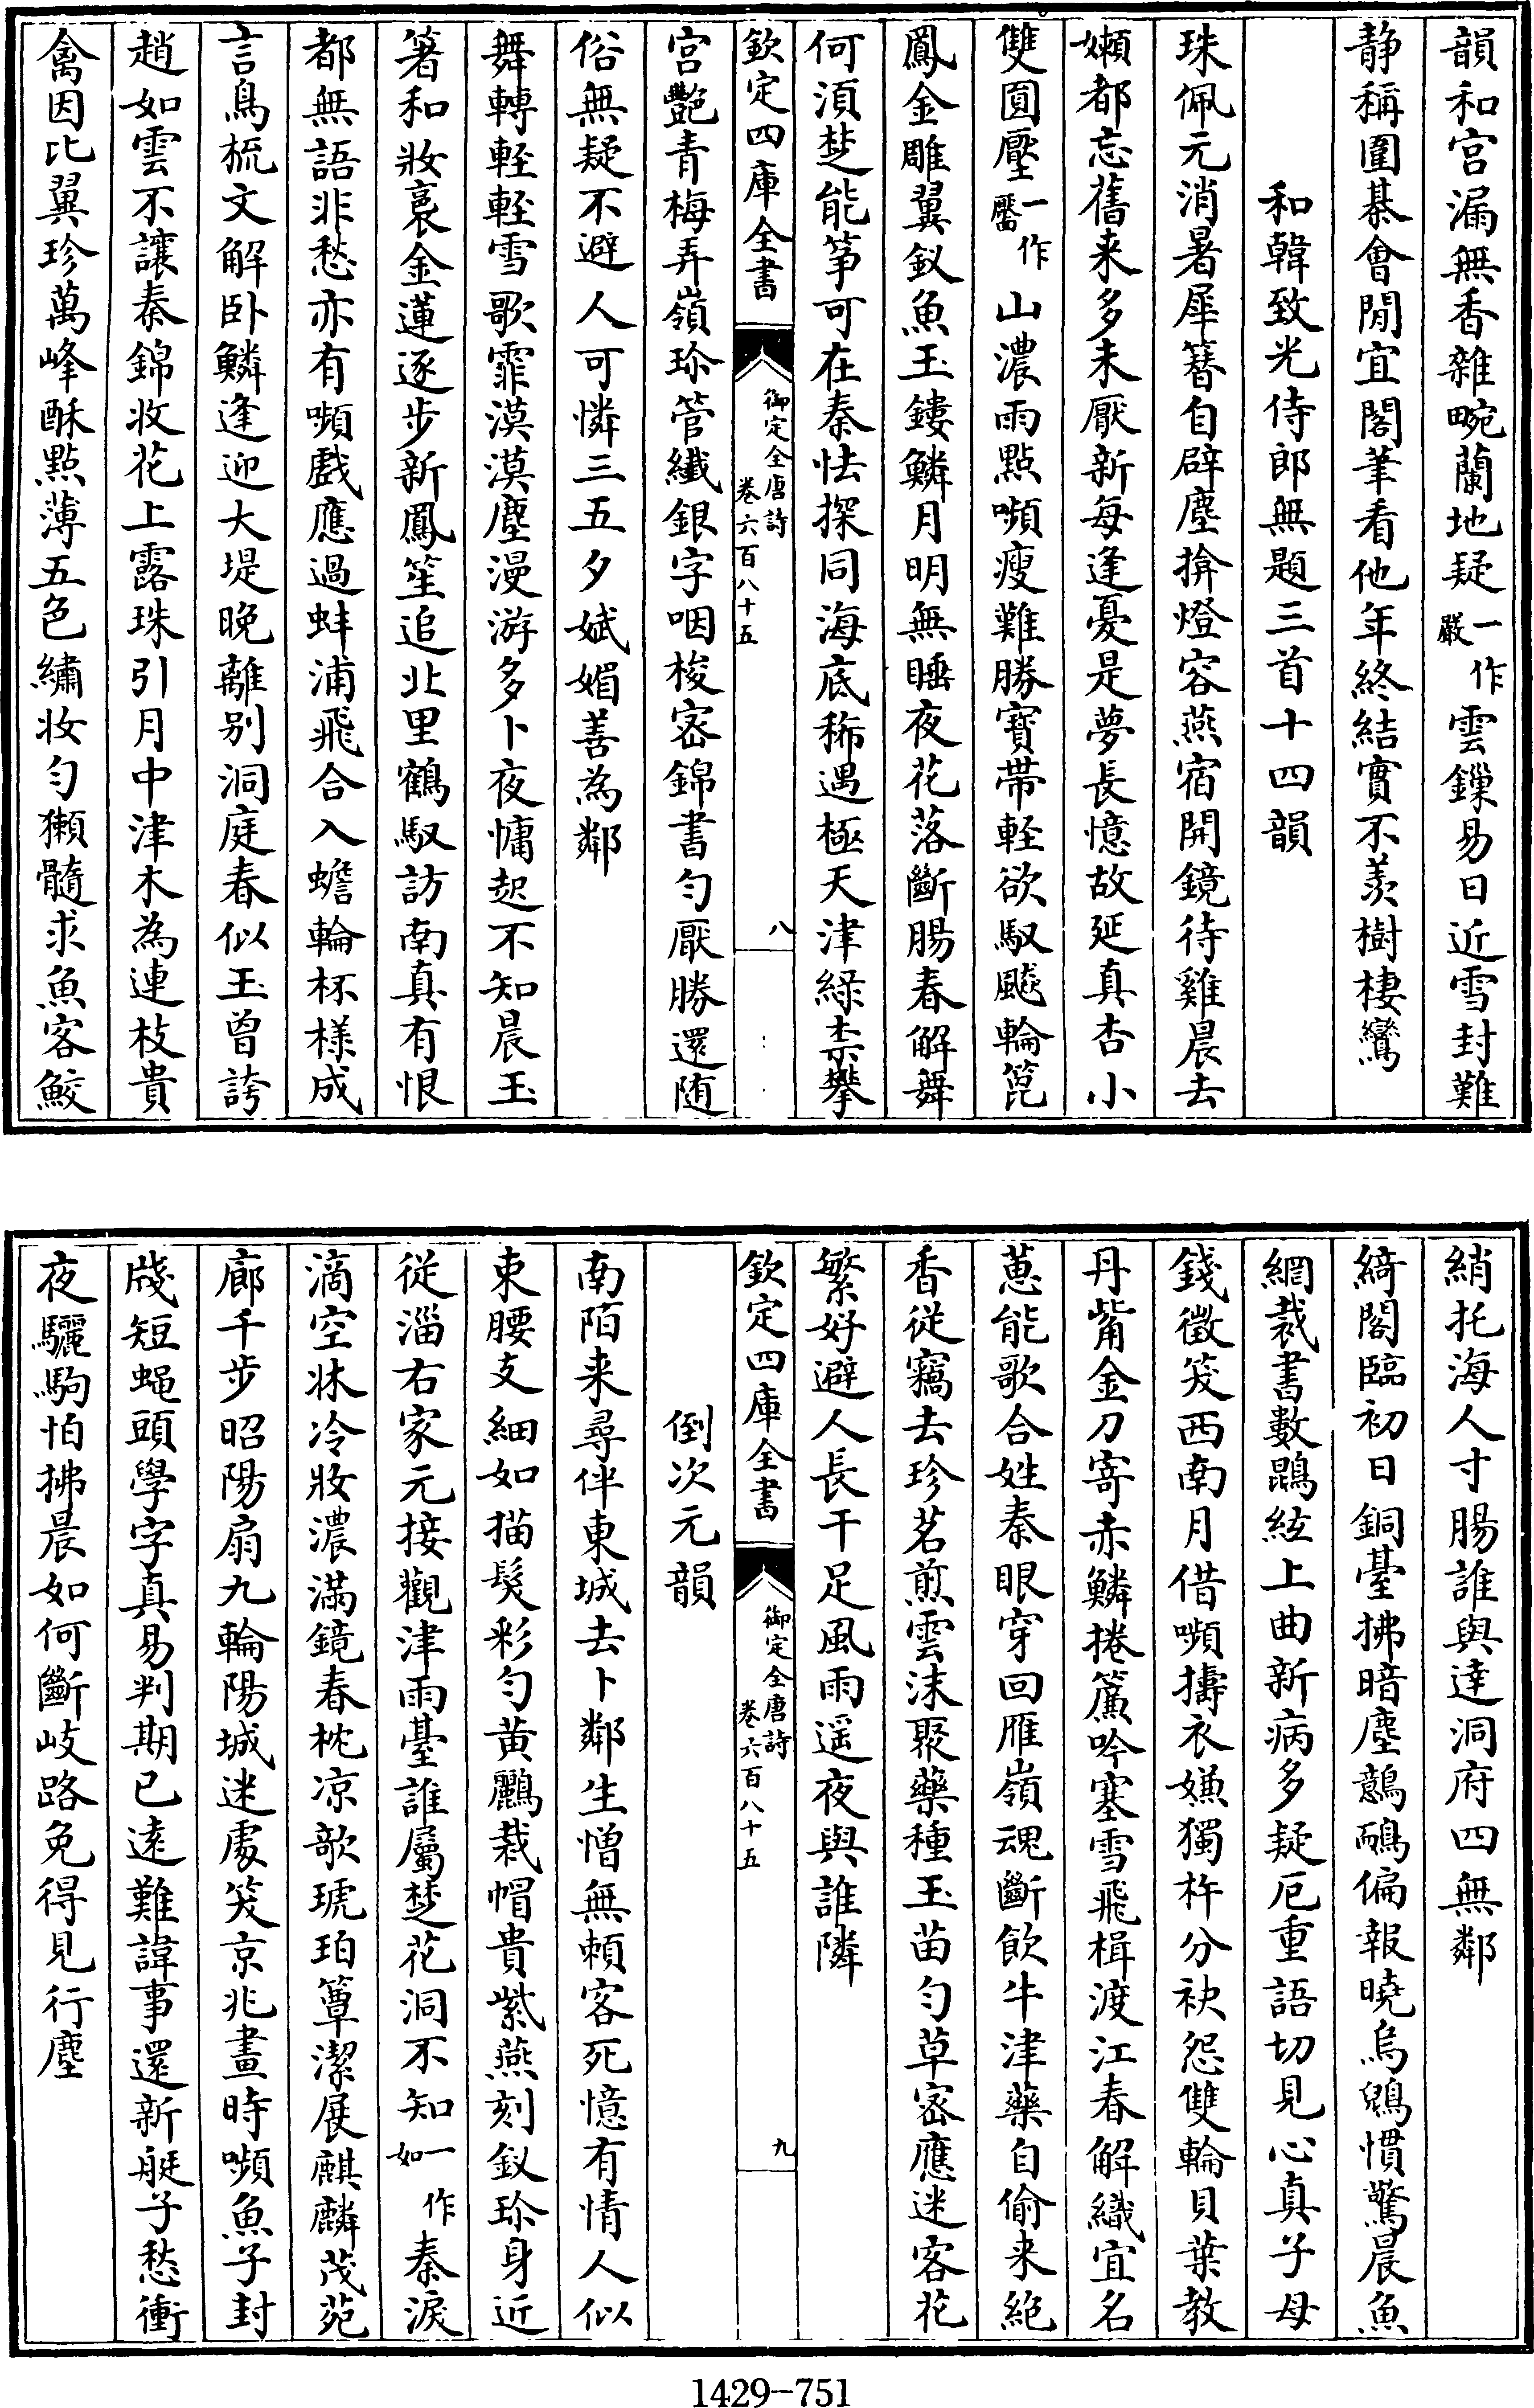 韻和宫漏無香雜畹蘭地疑一作嚴雲鏁易日近雪封難
静稱圍棊會閒宜閣筆看他年終結實不羡樹棲鸞
和韓致光侍郎無題三首十四韻
珠佩元消暑犀簪自辟塵掩燈容燕宿開鏡待雞晨去
嬾都忘舊来多未厭新每逢憂是夢長憶故延真杏小
雙圓壓一作黶山濃兩點嚬瘦難勝寶帶輕欲馭飈輪篦
鳳金雕翼釵魚玉鏤鱗月明無睡夜花落斷腸春解舞
何須楚能筝可在秦怯探同海底稀遇極天津緑柰攀
欽定四庫全書
御定全唐詩
卷六百八十五
八
宫艷青梅弄嶺珍管纖銀字咽梭密錦書勻厭勝還随
俗無疑不避人可憐三五夕娬媚善為鄰
舞轉輕輕雪歌霏漠漠塵漫游多卜夜慵起不知晨玉
箸和妝裛金蓮逐步新鳳笙追北里鶴馭訪南真有恨
都無語非愁亦有嚬戲應過蚌浦飛合入蟾輪杯様成
言鳥梳文解卧鱗逢迎大堤晚離别洞庭春似玉曾誇
趙如雲不讓秦錦收花上露珠引月中津木為連枝貴
禽因比翼珍萬峰酥點薄五色繡妝勻獺髓求魚客鮫
綃托海人寸腸誰與達洞府四無鄰
綺閣臨初日銅臺拂暗塵鷾鴯偏報曉烏鴞慣驚晨魚
網裁書數鵾絃上曲新病多疑厄重語切見心真子母
錢徴笑西南月借嚬擣衣嫌獨杵分袂怨雙輪貝葉教
丹觜金刀寄赤鱗捲簾吟塞雪飛楫渡江春解織宜名
蕙能歌合姓秦眼穿回雁嶺魂斷飲牛津藥自偷来絶
香從竊去珍茗煎雲沫聚藥種玉苗勻草密應迷客花
繁好避人長干足風雨遥夜與誰隣
欽定四庫全書
御定全唐詩
卷六百八十五
九
倒次元韻
南陌来尋伴東城去卜鄰生憎無頼客死憶有情人似
束腰支細如描髮彩勻黄鸝裁帽貴紫燕刻釵珍身近
從淄右家元接觀津雨臺誰屬楚花洞不知一作如秦淚
滴空牀冷妝濃滿鏡春枕凉欹琥珀簟潔展麒麟茂苑
廊千步昭陽扇九輪陽城迷處笑京兆畫時嚬魚子封
牋短蠅頭學字真易判期已遠難諱事還新艇子愁衝
夜驪駒怕拂晨如何斷岐路免得見行塵
1429-751